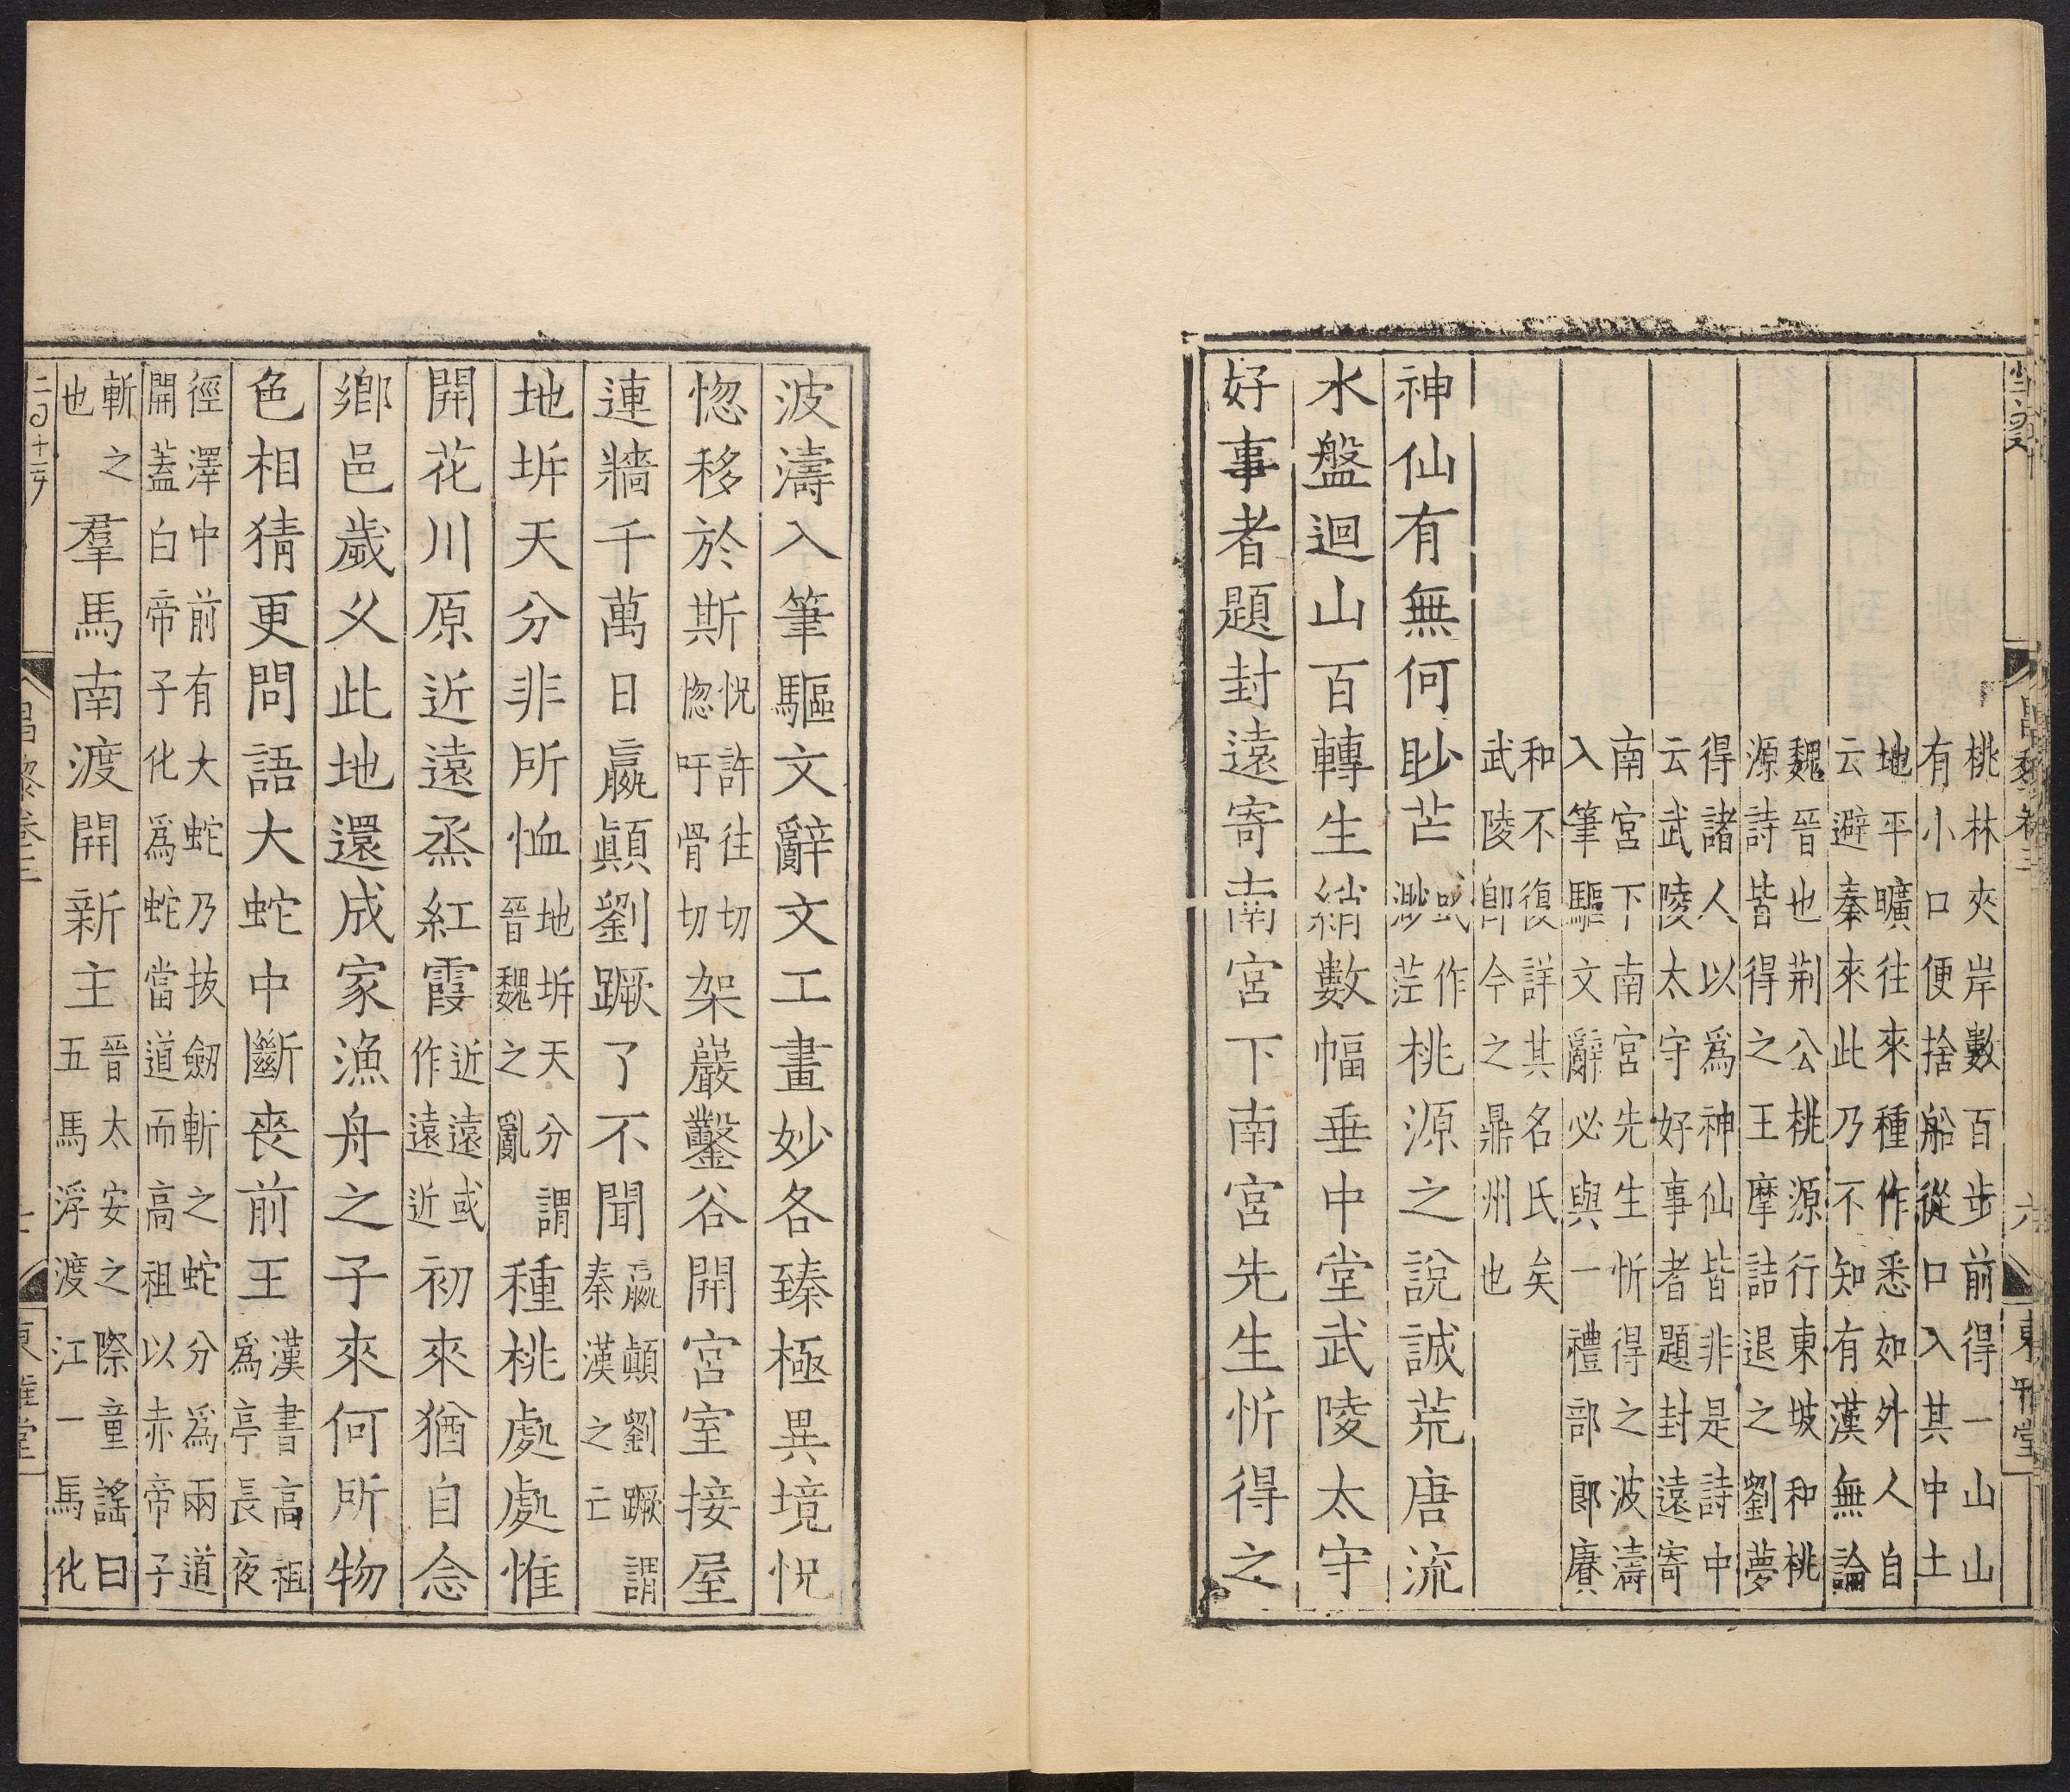 桃林夾岸數百步前得一山山
有小口便捨船從口入其中土
地平曠往來種作悉如外人自
云避秦來此乃不知有漢無論
魏晉也荆公桃源行東坡和桃
源詩皆得之王摩詰退之劉夢
得諸人以爲神仙皆非是詩中
云武陵太守好事者題封遠寄
南宮下南宮先生忻得之波濤
入筆驅文辭必與一禮部郎賡
和不復詳其名氏矣
武陵卽今之鼎州也
神仙有無何眇芒眇或作渺茫桃源之說誠荒唐流
水盤迴山百轉生綃數幅垂中堂武陵太守
好事者題封遠寄南宮下南宮先生忻得之
波濤入筆驅文辭文工畫妙各臻極異境怳
惚移於斯怳許往切惚吁骨切架巖鑿谷開宮室接屋
連牆千萬日嬴顚劉蹶了不聞嬴顛劉蹶謂秦漢之亡
地坼天分非所恤地坼天分謂晉魏之亂種桃處處惟
開花川原近遠烝紅霞近遠或作遠近初來猶自念
鄉邑歲久此地還成家漁舟之子來何所物
色相猜更問語大蛇中斷喪前王漢書高祖爲亭長夜
徑澤中前有大蛇乃拔劒斬之蛇分爲兩道
開蓋白帝子化爲蛇當道而高祖以赤帝子
斬之也羣馬南渡開新主晉太安之際童謠曰五馬浮渡江一馬化